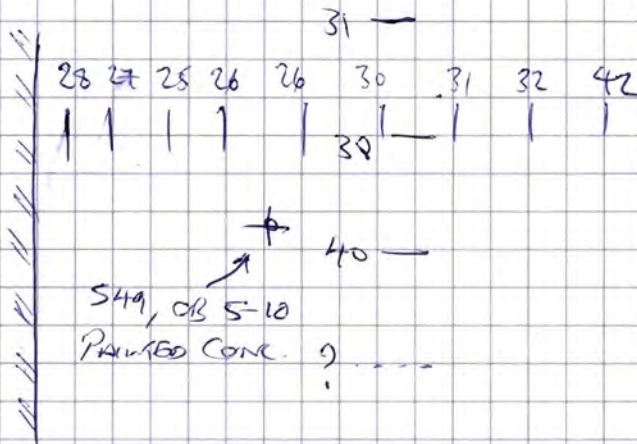 31
28 27 25 26 26 30 31 32 42
38
40
S49, CB 5-10
PAINTED CONC.
?